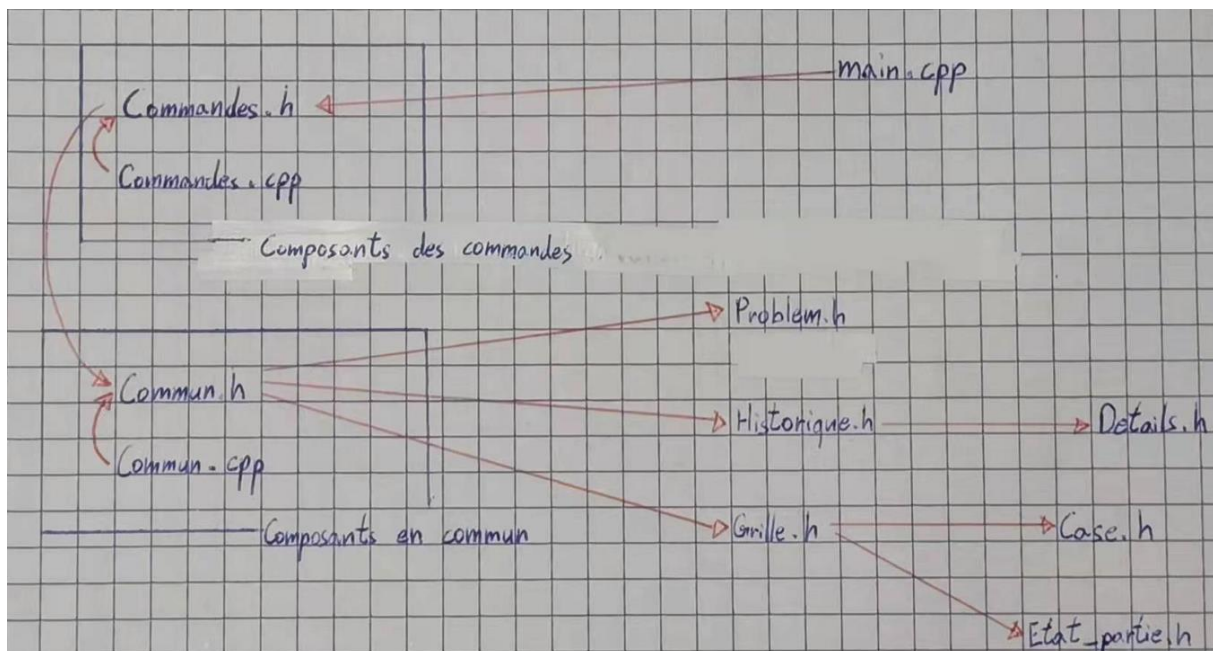 main.cpp
Commandes.h
Commandes.cpp
Composants des commandes
Problem.h
Commun.h
Historique.h
Details.h
Commun.cpp
Composants en commun
Grille.h
Case.h
Etat_partie.h